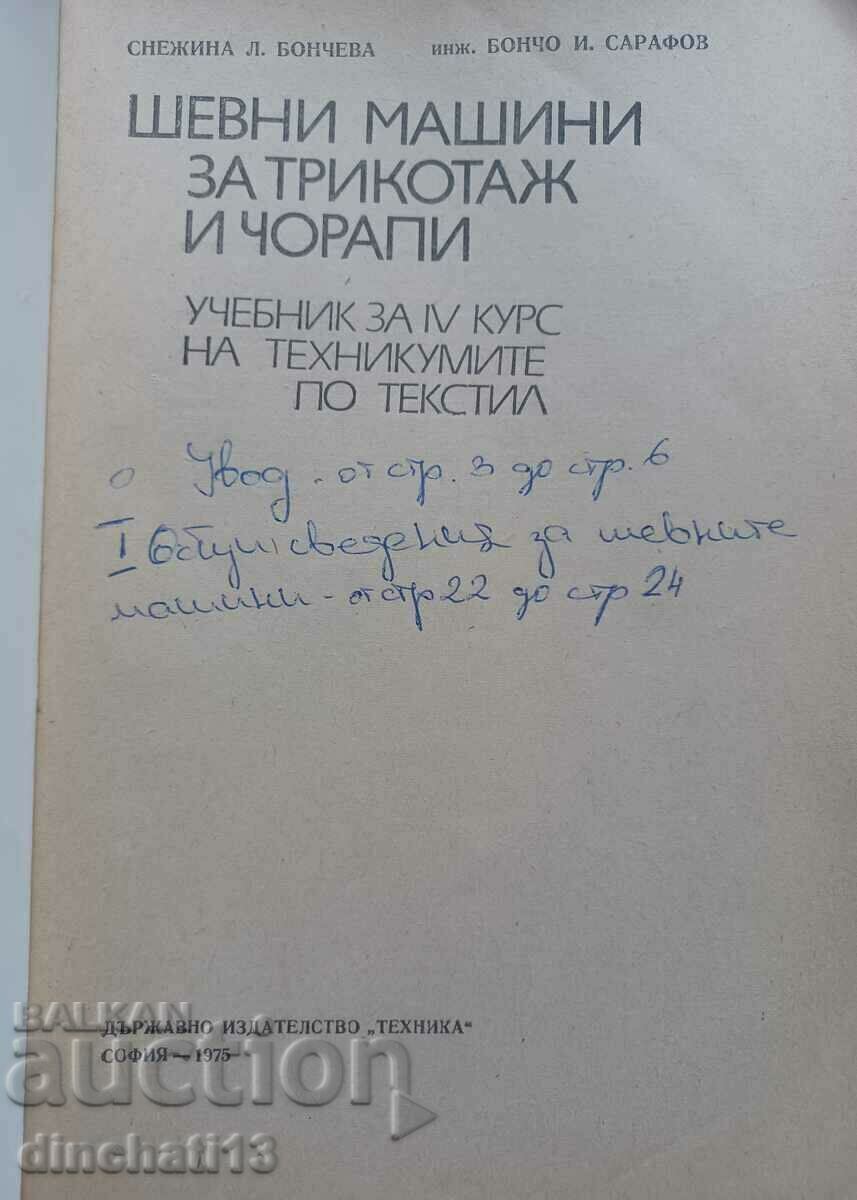 СНЕЖИНА Л. БОНЧЕВА инж. БОНЧО И. САРАФОВ
ШЕВНИ МАШИНИ
ЗА ТРИКОТАЖ
И ЧОРАПИ
УЧЕБНИК ЗА IV КУРС
НА ТЕХНИКУМИТЕ
ПО ТЕКСТИЛ
Увод - от стр. 3 до стр. 6
I Общи сведения за шевните
машини - от стр 22 до стр 24
BALKAN
auction
ДЪРЖАВНО ИЗДАТЕЛСТВО „ТЕХНИКА“
СОФИЯ — 1975
dinchati13